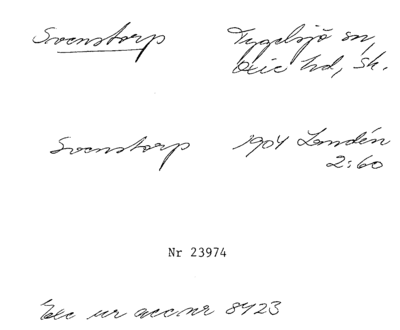 Svenstorp Tygelsjö sn,
Oxie hd, Sk.
Svenstorp 1904 Lundén
2:60
Nr 23974
Exc ur acc.nr 8423